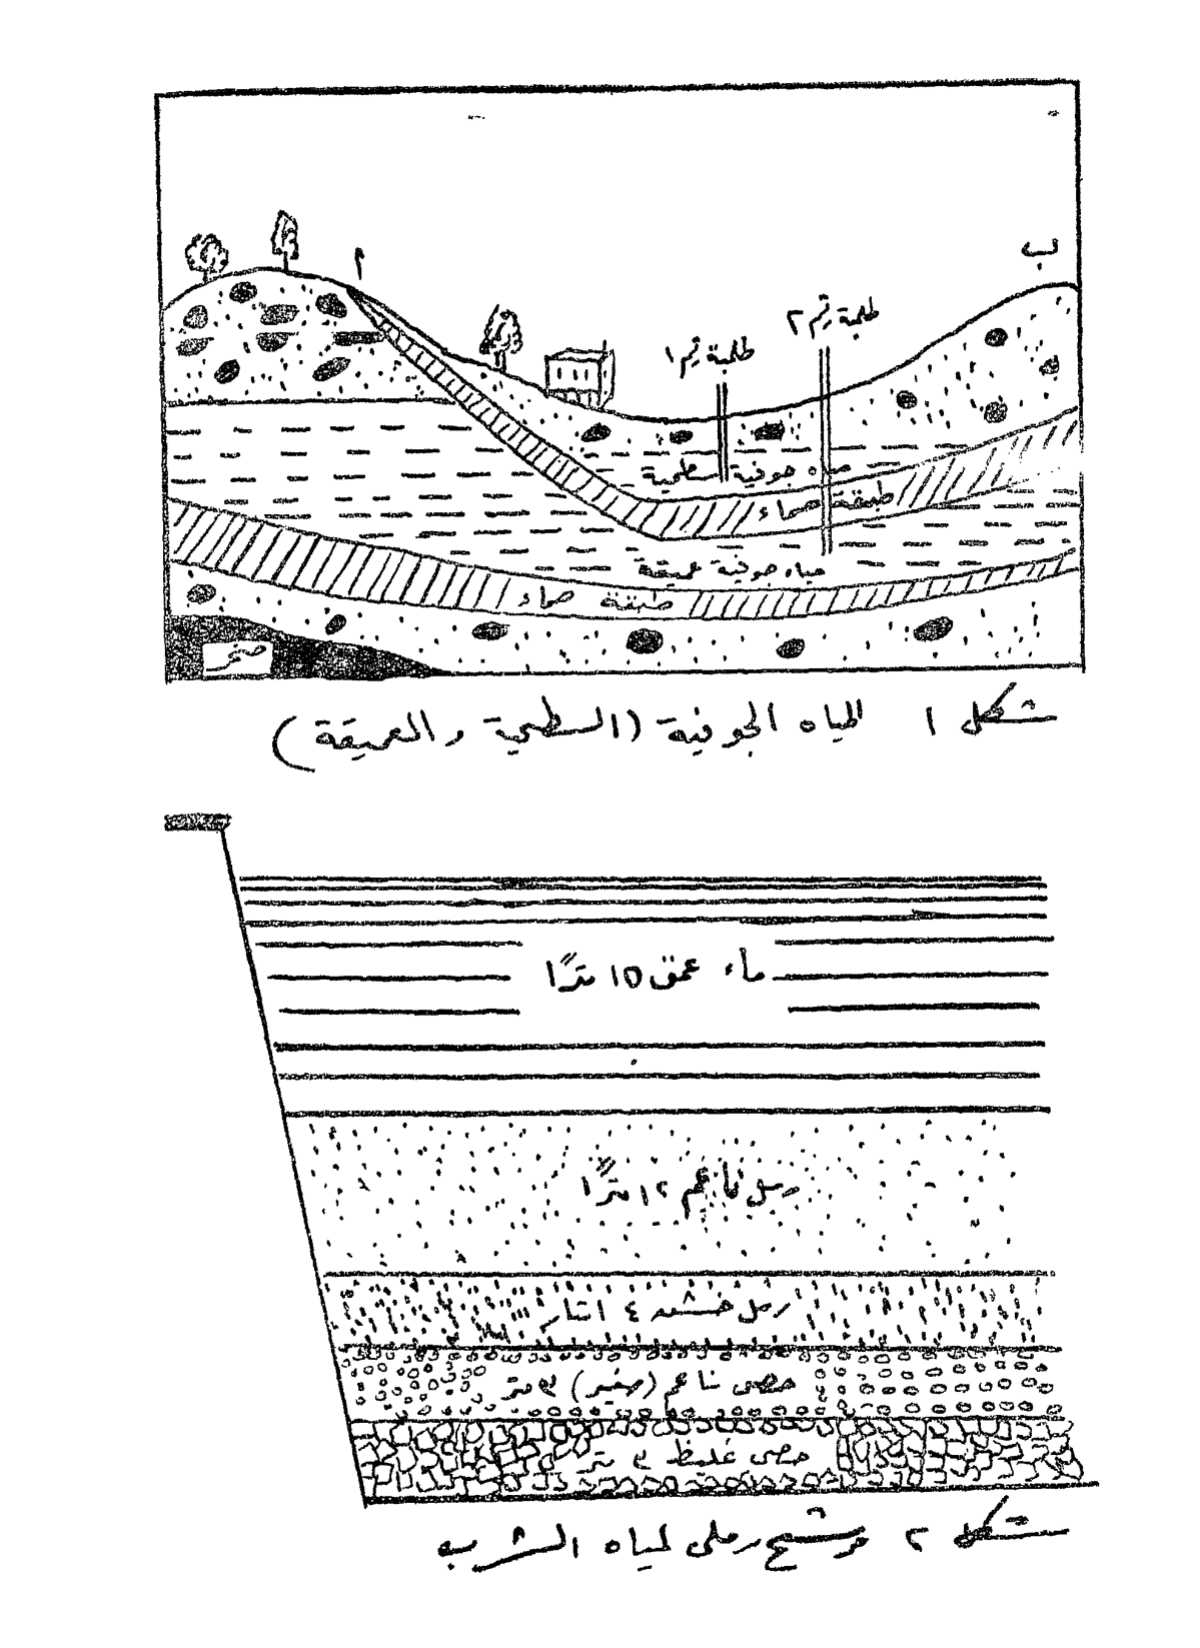 أ
ب
طلمبة رقم ٢
طلمبة رقم ١
مياه جوفية سطحية
طبقة صماء
مياه جوفية عميقة
طبقة صماء
صخر
شكل ١ المياه الجوفية (السطحية والعميقة)
ماء عمق ١٥ مترًا
رمل ناعم ١٢ مترًا
رمل خشن ٤ امتار
حصى ناعم (صغير) ٣ متر
حصى غليظ ٣ متر
شكل ٢ مرشح رملى لمياه الشرب